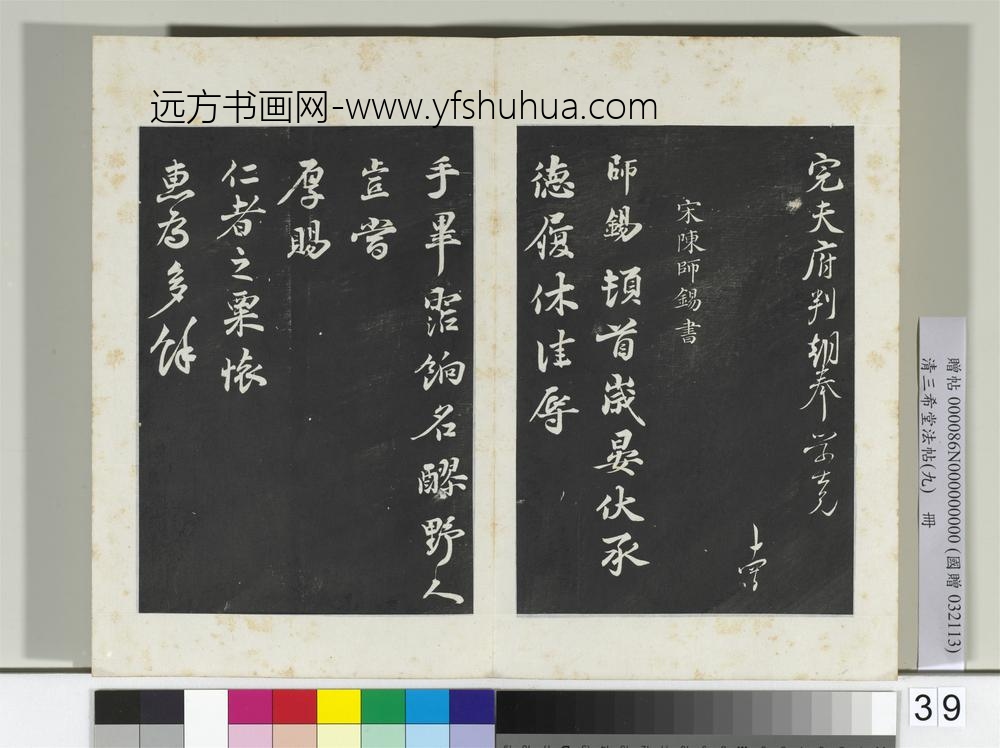 远方书画网-www.yfshuhua.com
完夫府判朝奉學士兄
宋陳師錫書
師錫頓首歲晏伏承
德履休佳辱
手畢寵餉名醪野人
豈嘗
厚賜
仁者之粟懷
惠為多餘
贈帖 000086N000000000 (國贈 032113)
清三希堂法帖(九) 冊
39